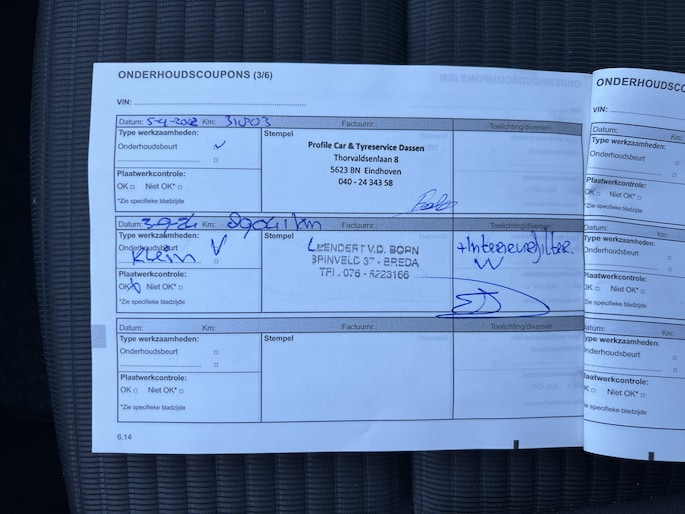 ONDERHOUDSCOUPONS (3/6)
VIN:
Datum: Km: 31003 Factuurnr.: Toelichting/diversen
Type werkzaamheden: Stempel
Onderhoudsbeurt
Profile Car & Tyreservice Dassen
Thorvaldsenlaan 8
5623 BN Eindhoven
040 - 24 343 58
Plaatwerkcontrole:
OK Niet OK*
*Zie specifieke bladzijde
Datum: 3-9-24 Km: Factuurnr.: Toelichting/diversen
Type werkzaamheden: Stempel
Onderhoudsbeurt
Klein
LEENDERT V.D. BORN
SPINVELD 37 - BREDA
TEL. 076 - 5223166
+Interieurfilter.
Plaatwerkcontrole:
OK Niet OK*
*Zie specifieke bladzijde
Datum: Km: Factuurnr.: Toelichting/diversen
Type werkzaamheden: Stempel
Onderhoudsbeurt
Plaatwerkcontrole:
OK Niet OK*
*Zie specifieke bladzijde
6.14
ONDERHOUDSCO
VIN:
Datum:
Type werkzaamheden:
Onderhoudsbeurt
Plaatwerkcontrole:
OK Niet OK*
*Zie specifieke bladzijde
Datum:
Type werkzaamheden:
Onderhoudsbeurt
Plaatwerkcontrole:
OK Niet OK*
*Zie specifieke bladzijde
Datum:
Type werkzaamheden:
Onderhoudsbeurt
Plaatwerkcontrole:
OK Niet OK*
*Zie specifieke bladzijde